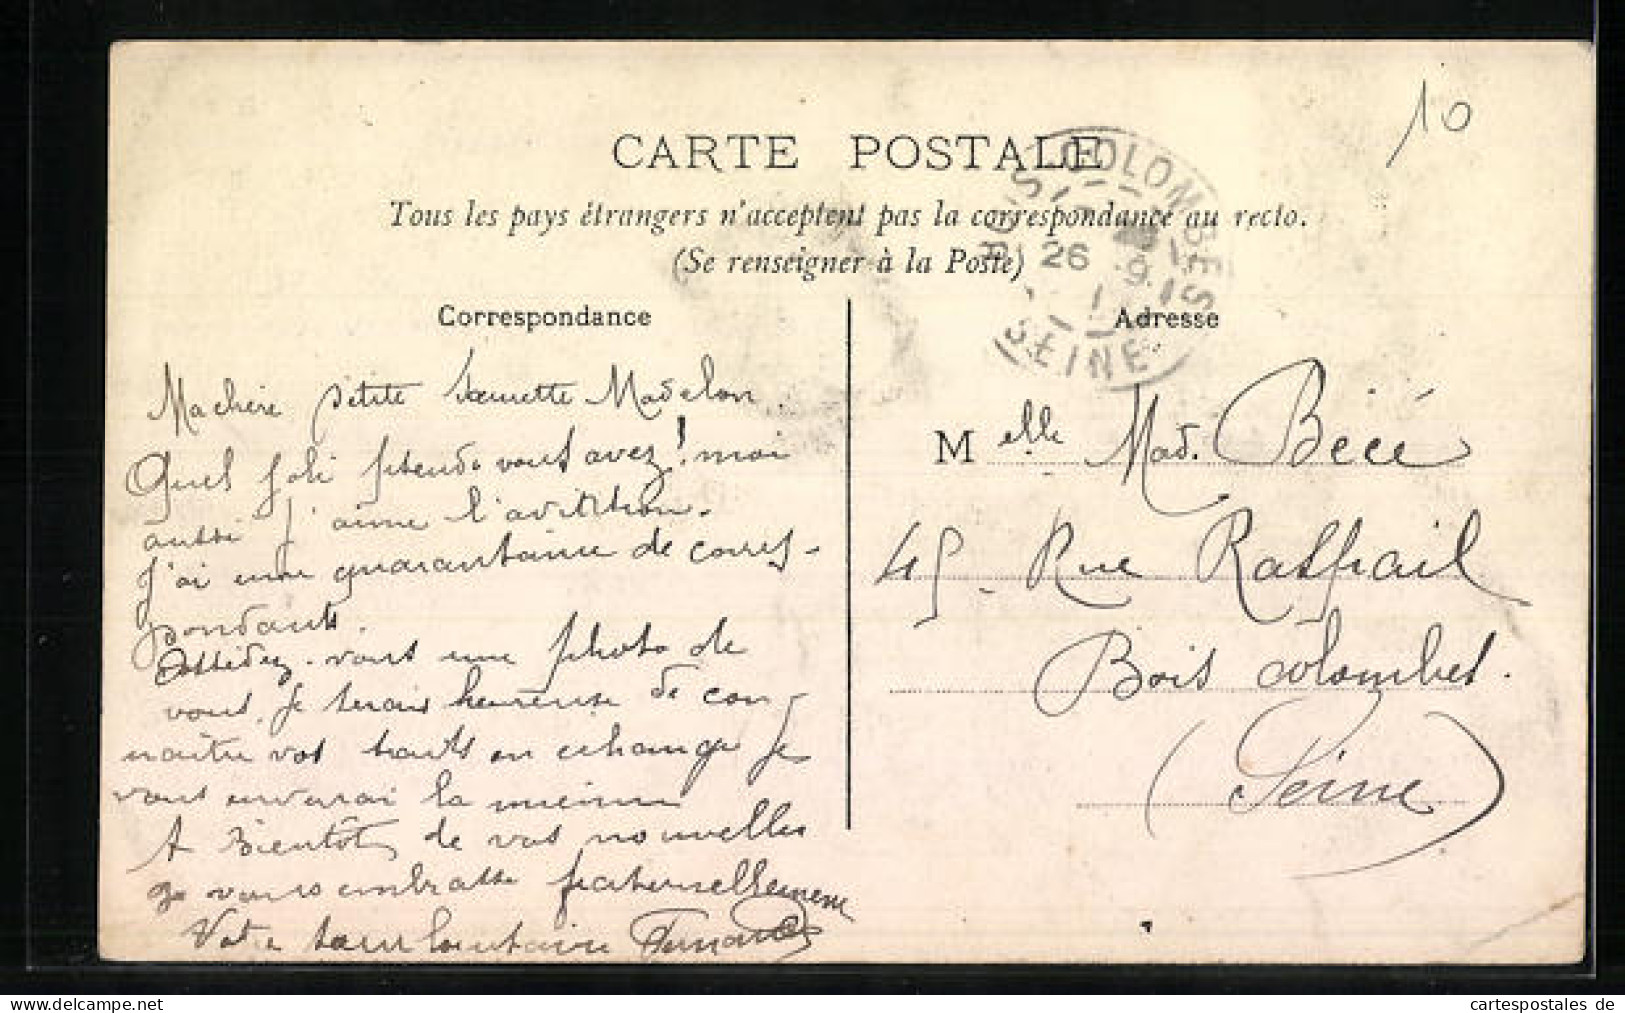 10
CARTE POSTALE
Tous les pays étrangers n'acceptent pas la correspondance au recto.
(Se renseigner à la Poste)
BOIS COLOMBES
26
9
SEINE
Correspondance
Adresse
Ma chère petite sœurette Madelon
Quel joli pseudo vous avez! moi
aussi j'aime l'aviation.
J'ai une quarantaine de corres-
pondants.
vous une photo de
vous. Je serais heureuse de con-
naître vos traits en échange je
vous enverrai la mienne
A bientôt de vos nouvelles
je vous embrasse fraternellement
Votre sœur lointaine
Melle Mad. Bécé
45 Rue Raspail
Bois Colombes.
(Seine)
cartespostales de